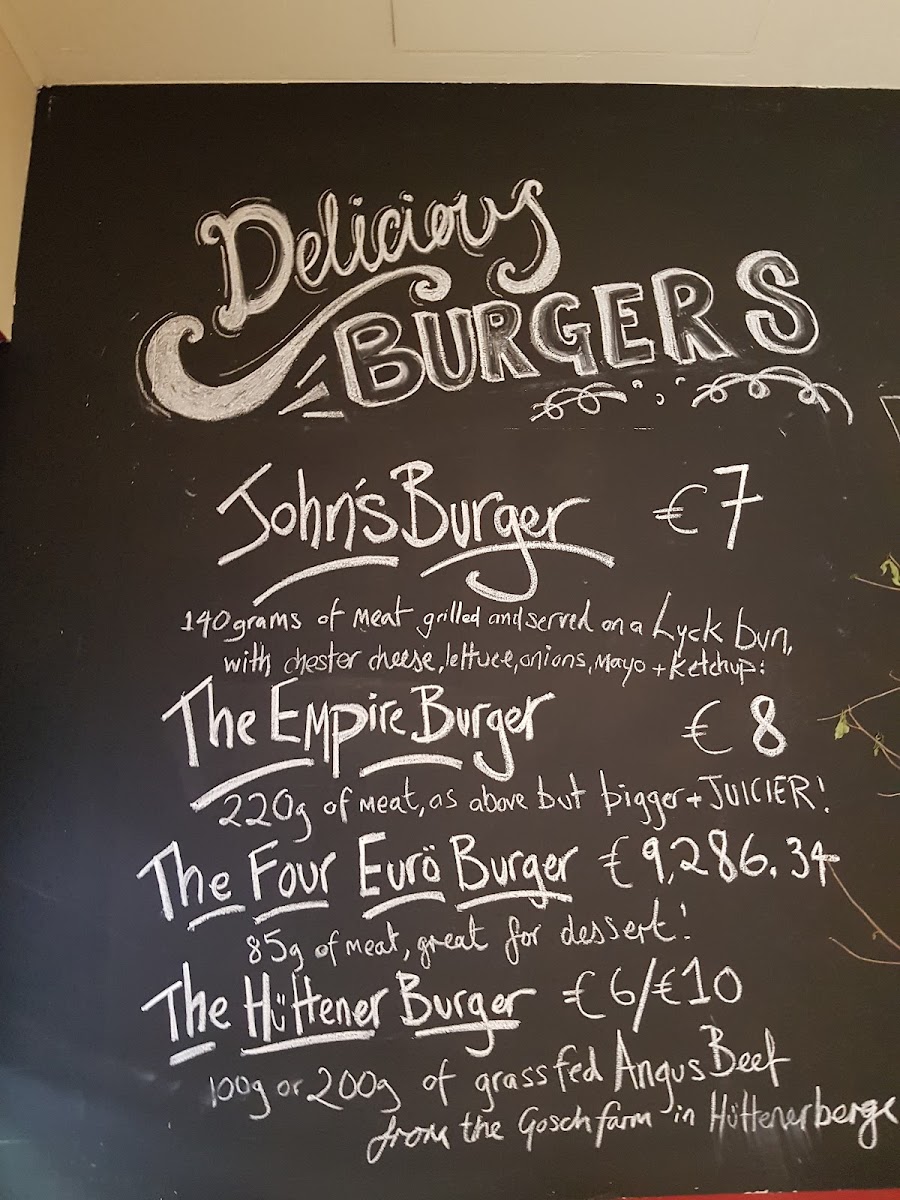 Delicious
BURGERS
John's Burger €7
140grams of meat grilled and served on a Lyck bun,
with chester cheese, lettuce, onions, Mayo + Ketchup!
The Empire Burger € 8
220g of meat, as above but bigger + JUICIER!
The Four Eurö Burger €9,286.34
85g of meat, great for dessert!
The Hüttener Burger €6/€10
100g or 200g of grass fed Angus Beef
from the Gosch farm in Hüttenerberge